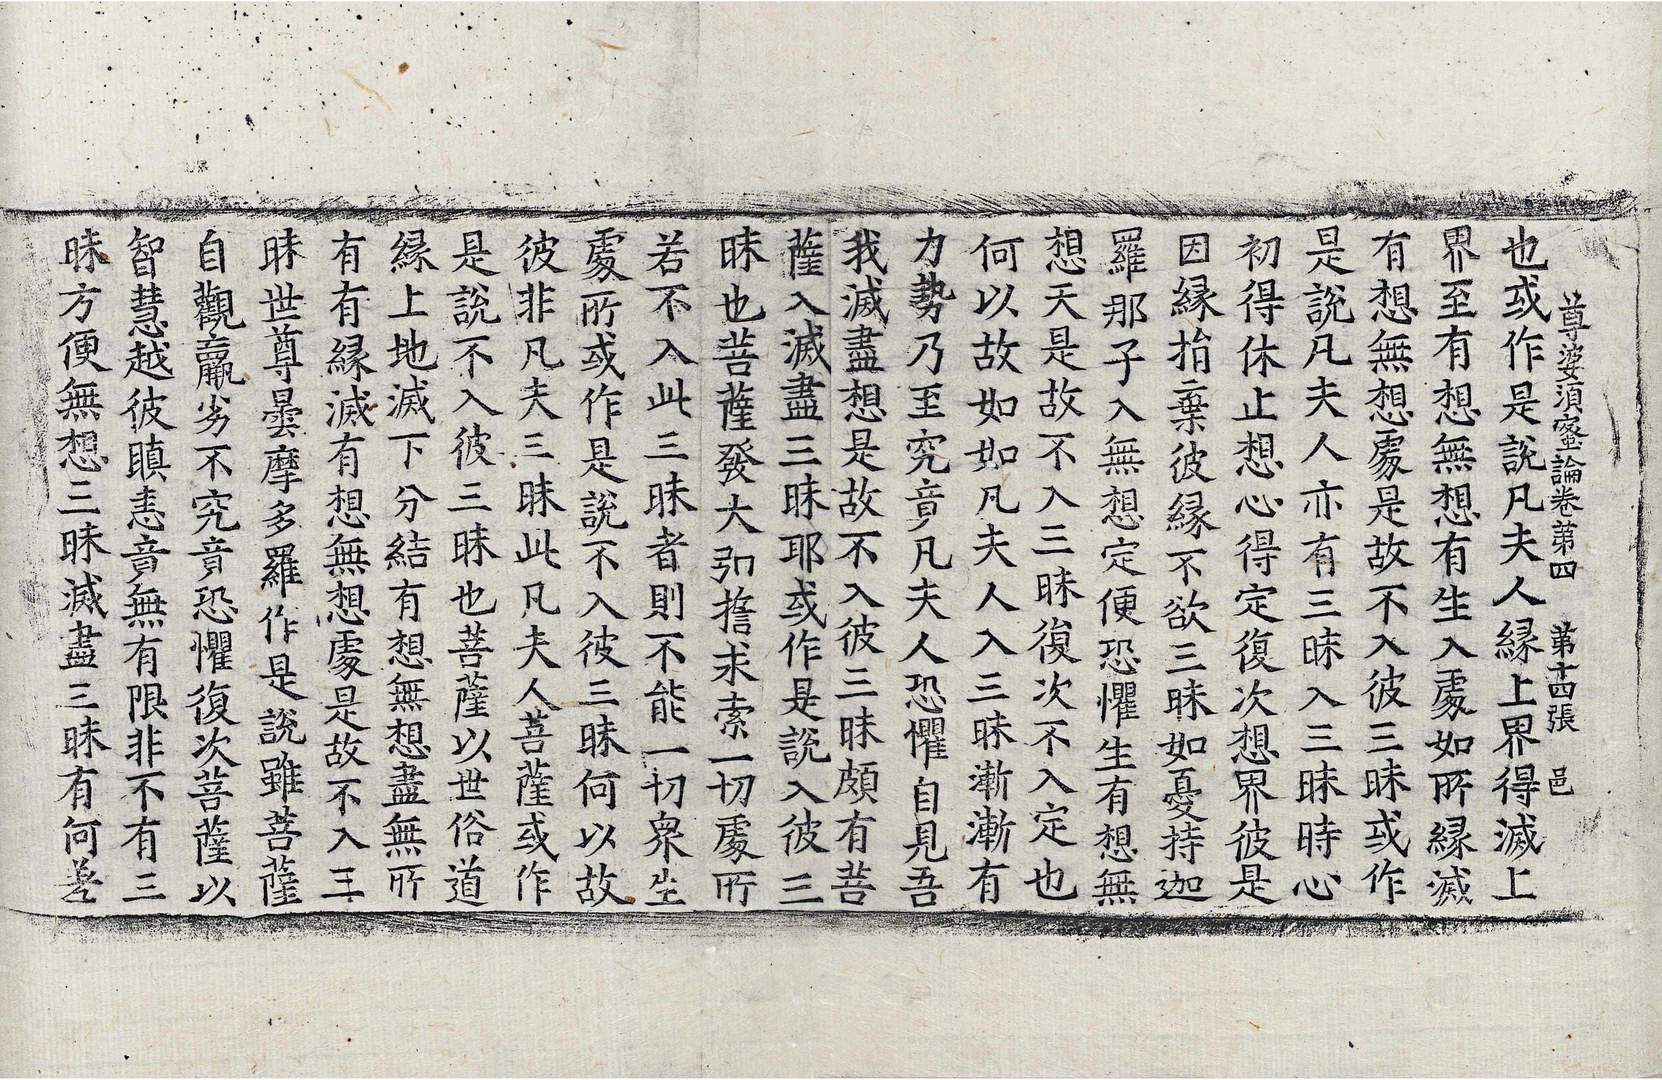 尊婆湏蜜論卷苐四　苐十四張　邑
也或作是說凡夫人縁上界得滅上
界至有想無想有生入處如所縁滅
有想無想處是故不入彼三昧或作
是說凡夫人亦有三昧入三昧時心
初得休止想心得定復次想界彼是
因縁捨棄彼縁不欲三昧如憂持迦
羅那子入無想定便恐懼生有想無
想天是故不入三昧復次不入定也
何以故如如凡夫人入三昧漸漸有
力勢乃至究竟凡夫人恐懼自見吾
我滅盡想是故不入彼三昧頗有菩
薩入滅盡三昧耶或作是說入彼三
昧也菩薩發大弘擔求索一切處所
若不入此三昧者則不能一切衆生
處所或作是說不入彼三昧何以故
彼非凡夫三昧此凡夫人菩薩或作
是說不入彼三昧也菩薩以世俗道
縁上地滅下分結有想無想盡無所
有有縁滅有想無想處是故不入三
昧世尊曇摩多羅作是說雖菩薩
自觀羸劣不究竟恐懼復次菩薩以
智慧越彼瞋恚竟無有限非不有三
昧方便無想三昧滅盡三昧有何差